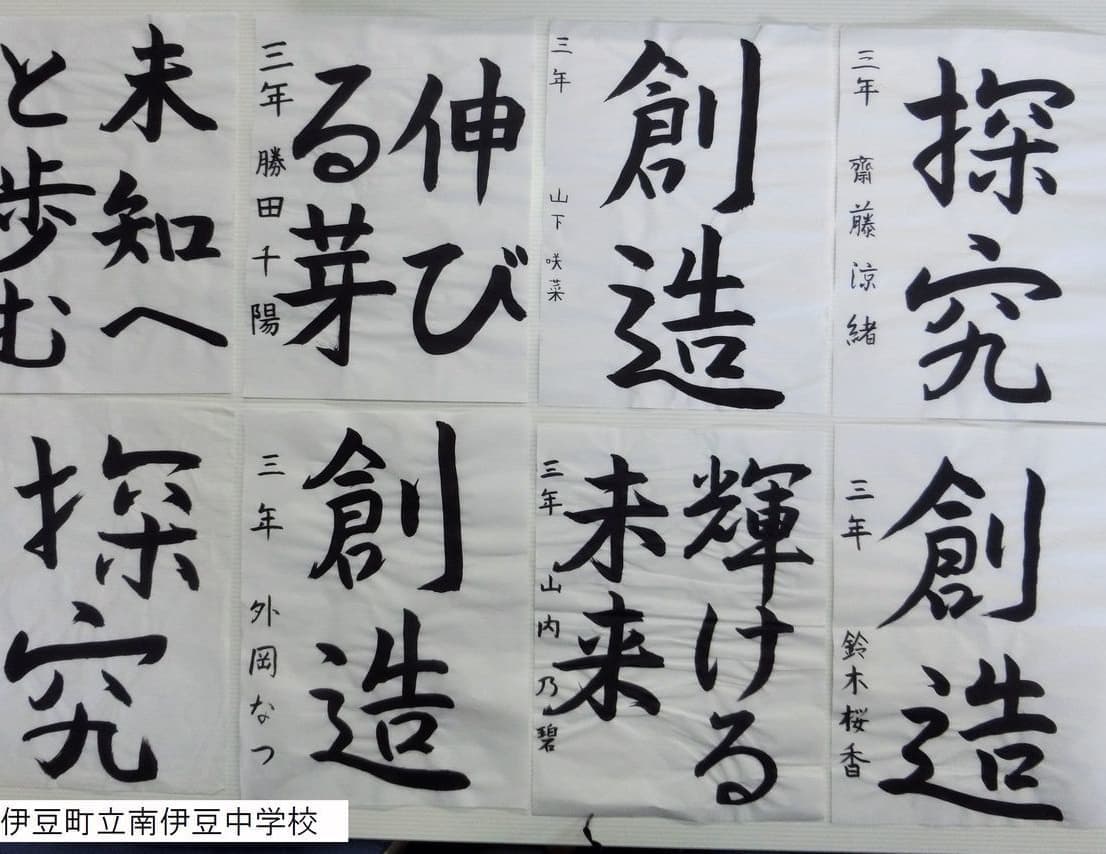 探究
三年 齋藤涼緒
創造
三年 山下咲菜
伸び
る芽
三年 勝田千陽
未知へ
と歩む
創造
三年 鈴木桜香
輝ける
未来
三年 山内乃碧
創造
三年 外岡なつ
探究
伊豆町立南伊豆中学校